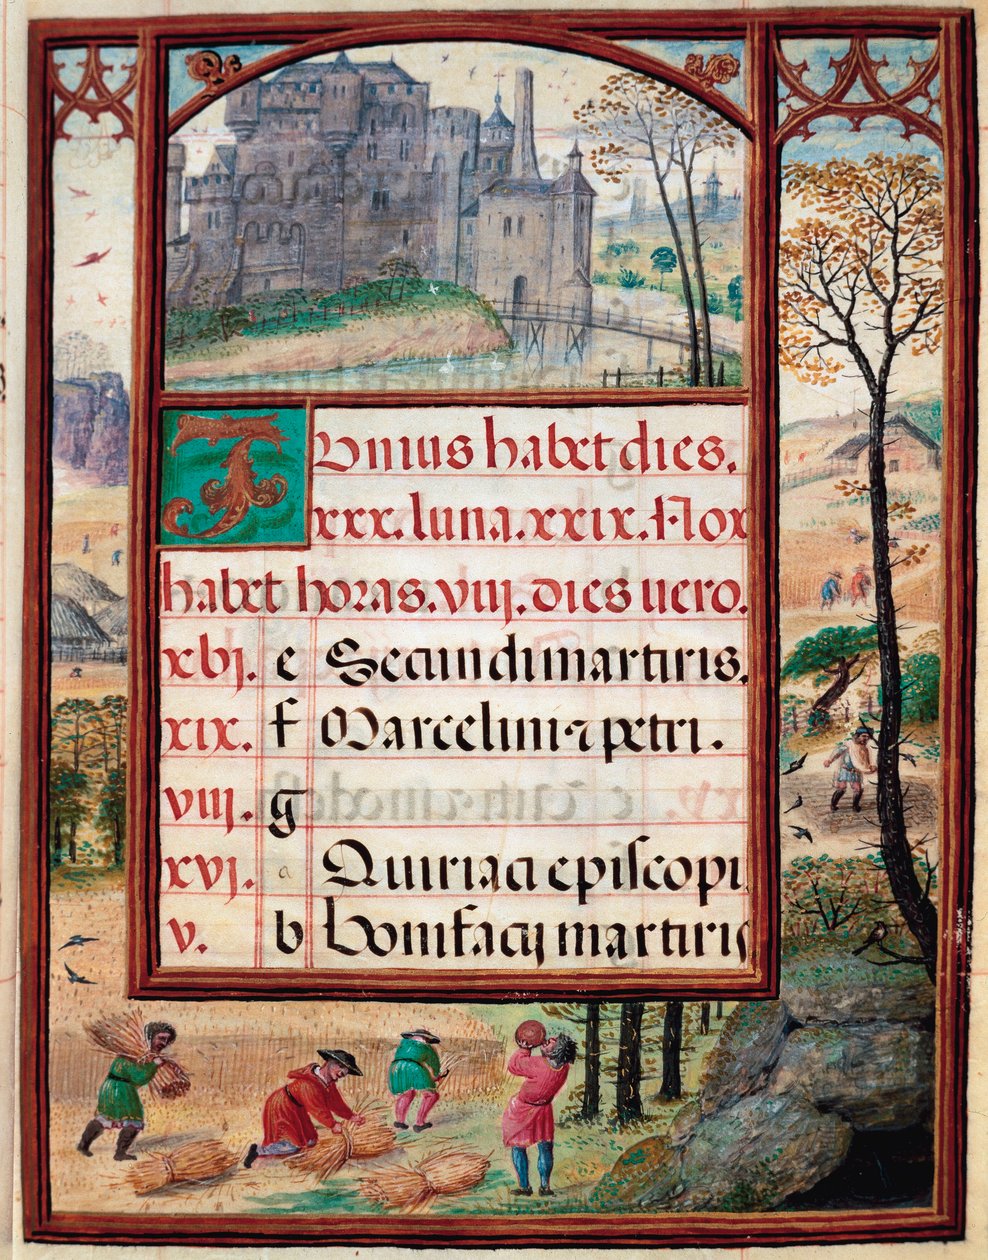 Junius habet dies.
xxx. luna. xxix. & nox
habet horas. viij. dies uero.
xbj. e Secundi martiris.
xix. f Marcelini ⁊ petri.
viij. g
xvj. a Quiriaci episcopi
v. b bonifacij martiris